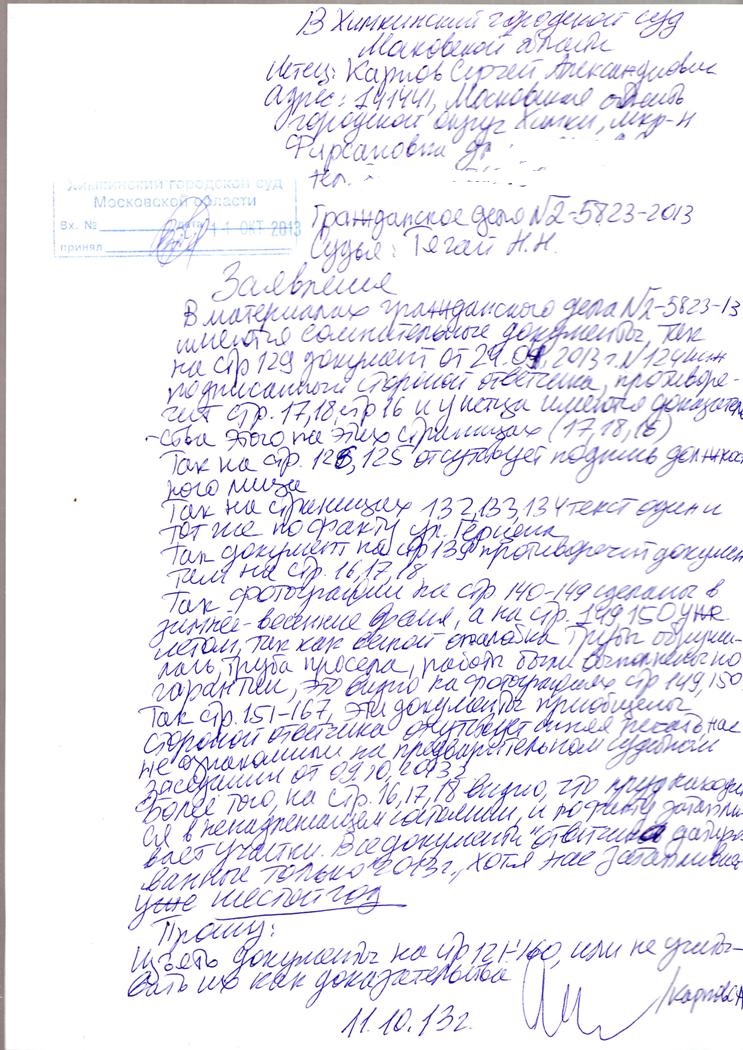 В Химкинский городской суд
Московской области
Истец: Карпов Сергей Александрович
Адрес: 141441, Московская область
городской округ Химки, мкр-н
Фирсановка
тел.
Химкинский городской суд
Московской области
Вх. № дата 11 ОКТ 2013
принял
Гражданское дело №2-5823-2013
Судья: Тягай Н.Н.
Заявление
В материалах гражданского дела №2-5823-13
имеются сомнительные документы, так
на стр 129 документ от 29.01.2013 г. №124
подписанный стороной ответчика, противоре-
чит стр. 17,18, стр 16 и у истца имеются доказатель
-ства этого на этих страницах (17,18,16)
Так на стр. 126, 125 отсутствует подпись должност
ного лица
Так на страницах 132,133,134 текст один и
тот же по факту ул. Герцена
Так документ на стр 139 противоречит докумен
там на стр. 16,17,18
Так фотографии на стр 140-149 сделаны в
зимнее-весеннее время, а на стр. 149,150 уже
летом, так как опалобка трубы обруши-
лась, труба просела, работы были выполнены по
гарантии, это видно на фотографиях стр 149,150
Так стр. 151-167, эти документы приобщены
стороной ответчика отсутствует синяя печать, нас
не ознакомили на предварительном судебном
заседании от 09.10.2013 г
Более того, на стр. 16,17,18 видно, что пруд находит
ся в ненадлежащем состоянии, и по факту затапли-
вает участки. Все документы ответчика датиро
ванные только 2013г., хотя нас затапливает
уже шестой год
Прошу:
Изъять документы на стр 121-160, или не учиты-
вать их как доказательства
/Карпов СА
11.10.13 г.